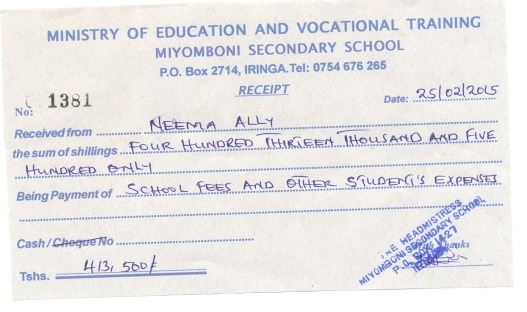 MINISTRY OF EDUCATION AND VOCATIONAL TRAINING
MIYOMBONI SECONDARY SCHOOL
P.O. Box 2714, IRINGA.Tel: 0754 676 265
RECEIPT
No: 1381
Date: 25/02/2015
Received from NEEMA ALLY
the sum of shillings FOUR HUNDRED THIRTEEN THOUSAND AND FIVE
HUNDRED ONLY
Being Payment of SCHOOL FEES AND OTHER STUDENT'S EXPENSES
Cash / Cheque No
THE HEADMISTRESS
MIYOMBONI SECONDARY SCHOOL
P.O. BOX
Tshs. 413,500/